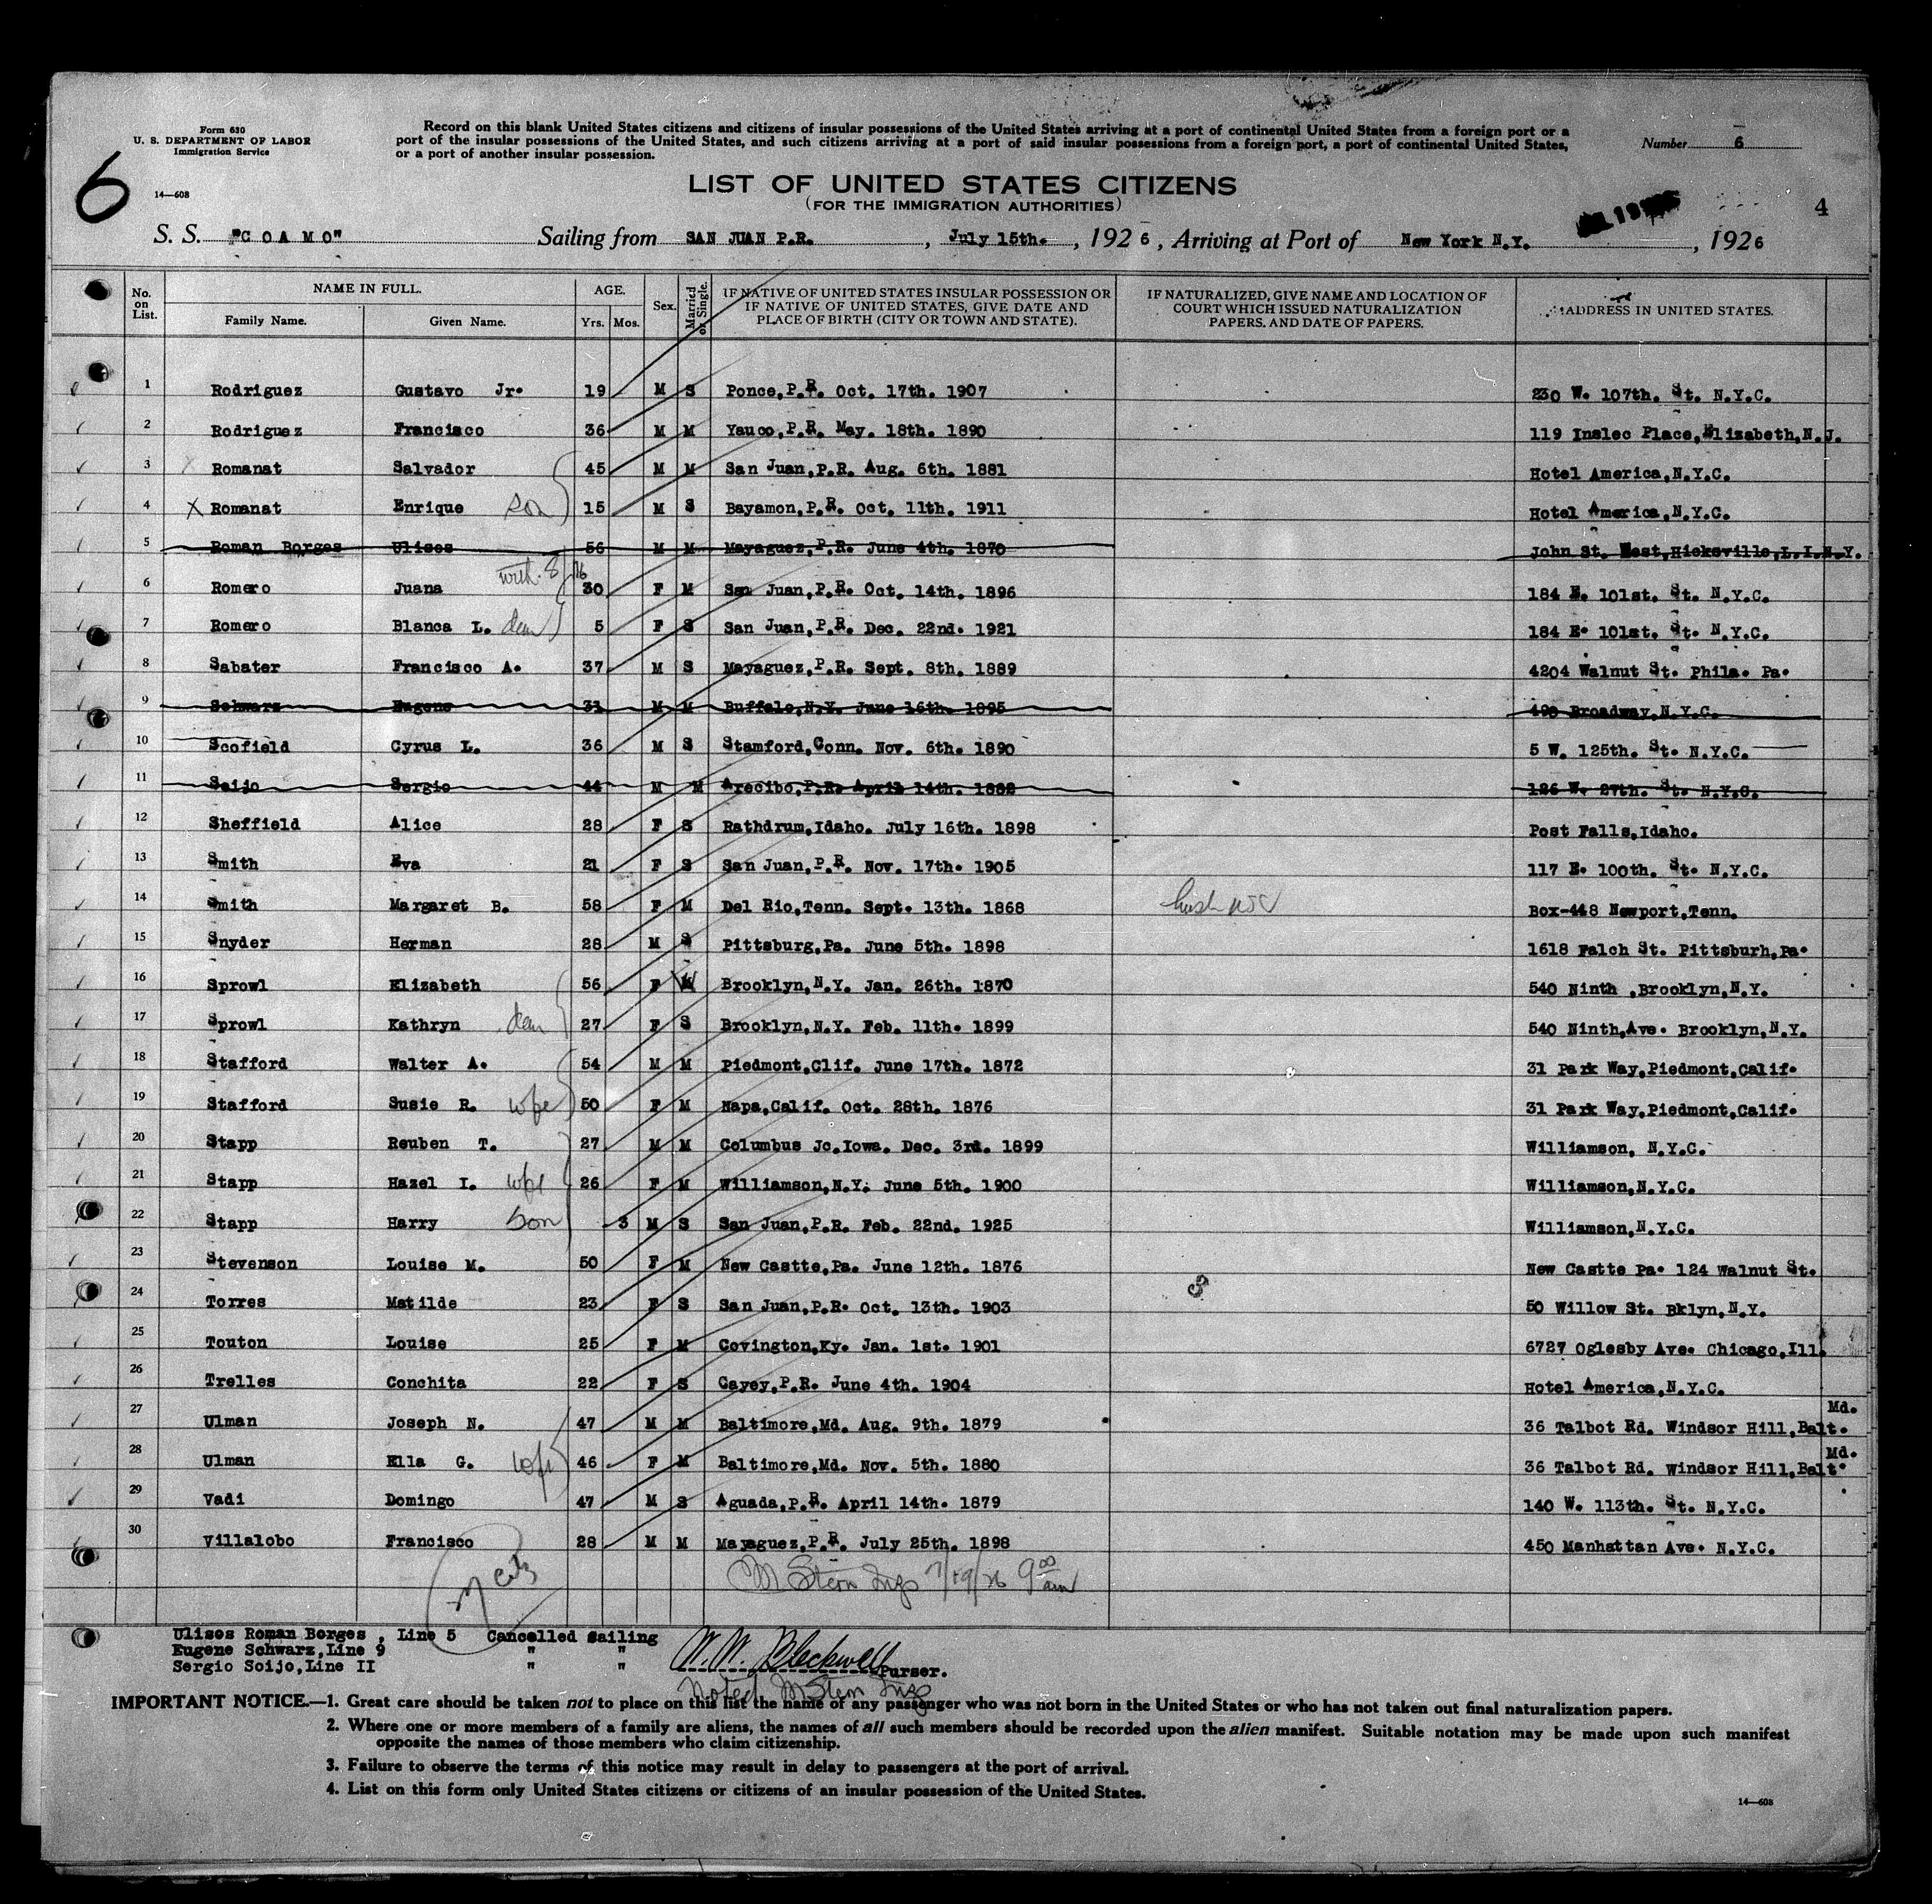 Form 630
U. S. DEPARTMENT OF LABOR
Immigration Service
14—608
6
Record on this blank United States citizens and citizens of insular possessions of the United States arriving at a port of continental United States from a foreign port or a
port of the insular possessions of the United States, and such citizens arriving at a port of said insular possessions from a foreign port, a port of continental United States,
or a port of another insular possession.
Number 6
LIST OF UNITED STATES CITIZENS
(FOR THE IMMIGRATION AUTHORITIES)
4
S. S. "COAMO" Sailing from SAN JUAN P.R. , July 15th. , 1926 , Arriving at Port of New York N.Y. , 1926
No. on List. NAME IN FULL. Family Name. Given Name. AGE. Yrs. Mos. Sex. Married or Single. IF NATIVE OF UNITED STATES INSULAR POSSESSION OR IF NATIVE OF UNITED STATES, GIVE DATE AND PLACE OF BIRTH (CITY OR TOWN AND STATE). IF NATURALIZED, GIVE NAME AND LOCATION OF COURT WHICH ISSUED NATURALIZATION PAPERS, AND DATE OF PAPERS. ADDRESS IN UNITED STATES.
1 Rodriguez Gustavo Jr. 19 M S Ponce,P.R. Oct. 17th. 1907 230 W. 107th. St. N.Y.C.
2 Rodriguez Francisco 36 M M Yauco,P.R. May. 18th. 1890 119 Inslec Place,Elizabeth,N.J.
3 Romanat Salvador 45 M M San Juan,P.R. Aug. 6th. 1881 Hotel America,N.Y.C.
4 X Romanat Enrique son 15 M S Bayamon,P.R. Oct. 11th. 1911 Hotel America,N.Y.C.
5 Roman Borges Ulises 56 M M Mayaguez,P.R. June 4th. 1870 John St. West,Hicksville,L.I.N.Y.
6 Romero Juana with 8/16 30 F M San Juan,P.R. Oct. 14th. 1896 184 E. 101st. St. N.Y.C.
7 Romero Blanca L. dau 5 F S San Juan,P.R. Dec. 22nd. 1921 184 E. 101st. St. N.Y.C.
8 Sabater Francisco A. 37 M S Mayaguez,P.R. Sept. 8th. 1889 4204 Walnut St. Phila. Pa.
9 Schwarz Eugene 31 M M Buffalo,N.Y. June 16th. 1895 Broadway,N.Y.C.
10 Scofield Cyrus L. 36 M S Stamford,Conn. Nov. 6th. 1890 5 W. 125th. St. N.Y.C.
11 Seijo Sergio 44 M M Arecibo,P.R. April 14th. 1882 126 W. 27th. St. N.Y.C.
12 Sheffield Alice 28 F S Rathdrum,Idaho. July 16th. 1898 Post Falls,Idaho.
13 Smith Eva 21 F S San Juan,P.R. Nov. 17th. 1905 117 E. 100th. St. N.Y.C.
14 Smith Margaret B. 58 F M Del Rio,Tenn. Sept. 13th. 1868 Box-448 Newport,Tenn.
15 Snyder Herman 28 M S Pittsburg,Pa. June 5th. 1898 1618 Falch St. Pittsburh,Pa.
16 Sprowl Elizabeth 56 F W Brooklyn,N.Y. Jan. 26th. 1870 540 Ninth ,Brooklyn,N.Y.
17 Sprowl Kathryn dau 27 F S Brooklyn,N.Y. Feb. 11th. 1899 540 Ninth,Ave. Brooklyn,N.Y.
18 Stafford Walter A. 54 M M Piedmont,Clif. June 17th. 1872 31 Park Way,Piedmont,Calif.
19 Stafford Susie R. wife 50 F M Napa,Calif. Oct. 28th. 1876 31 Park Way,Piedmont,Calif.
20 Stapp Reuben T. 27 M M Columbus Jc.Iowa. Dec. 3rd. 1899 Williamson, N.Y.C.
21 Stapp Hazel I. wife 26 F M Williamson,N.Y. June 5th. 1900 Williamson,N.Y.C.
22 Stapp Harry son 3 M S San Juan,P.R. Feb. 22nd. 1925 Williamson,N.Y.C.
23 Stevenson Louise M. 50 F M New Castte,Pa. June 12th. 1876 New Castte Pa. 124 Walnut St.
24 Torres Matilde 23 F S San Juan,P.R. Oct. 13th. 1903 50 Willow St. Bklyn,N.Y.
25 Touton Louise 25 F M Covington,Ky. Jan. 1st. 1901 6727 Oglesby Ave. Chicago,Ill.
26 Trelles Conchita 22 F S Cayey,P.R. June 4th. 1904 Hotel America,N.Y.C.
27 Ulman Joseph N. 47 M M Baltimore,Md. Aug. 9th. 1879 36 Talbot Rd. Windsor Hill,Balt. Md.
28 Ulman Ella G. wife 46 F M Baltimore,Md. Nov. 5th. 1880 36 Talbot Rd. Windsor Hill,Balt. Md.
29 Vadi Domingo 47 M S Aguada,P.R. April 14th. 1879 140 W. 113th. St. N.Y.C.
30 Villalobo Francisco 28 M M Mayaguez,P.R. July 25th. 1898 450 Manhattan Ave. N.Y.C.
M Stern Insp 7/19/26 9 00 am
Ulises Roman Borges , Line 5 Cancelled Sailing
Eugene Schwarz,Line 9 " "
Sergio Soijo,Line II " "
W. W. Blackwell Purser.
Noted M Stern Insp
IMPORTANT NOTICE.—1. Great care should be taken not to place on this list the name of any passenger who was not born in the United States or who has not taken out final naturalization papers.
2. Where one or more members of a family are aliens, the names of all such members should be recorded upon the alien manifest. Suitable notation may be made upon such manifest
opposite the names of those members who claim citizenship.
3. Failure to observe the terms of this notice may result in delay to passengers at the port of arrival.
4. List on this form only United States citizens or citizens of an insular possession of the United States.
14—608